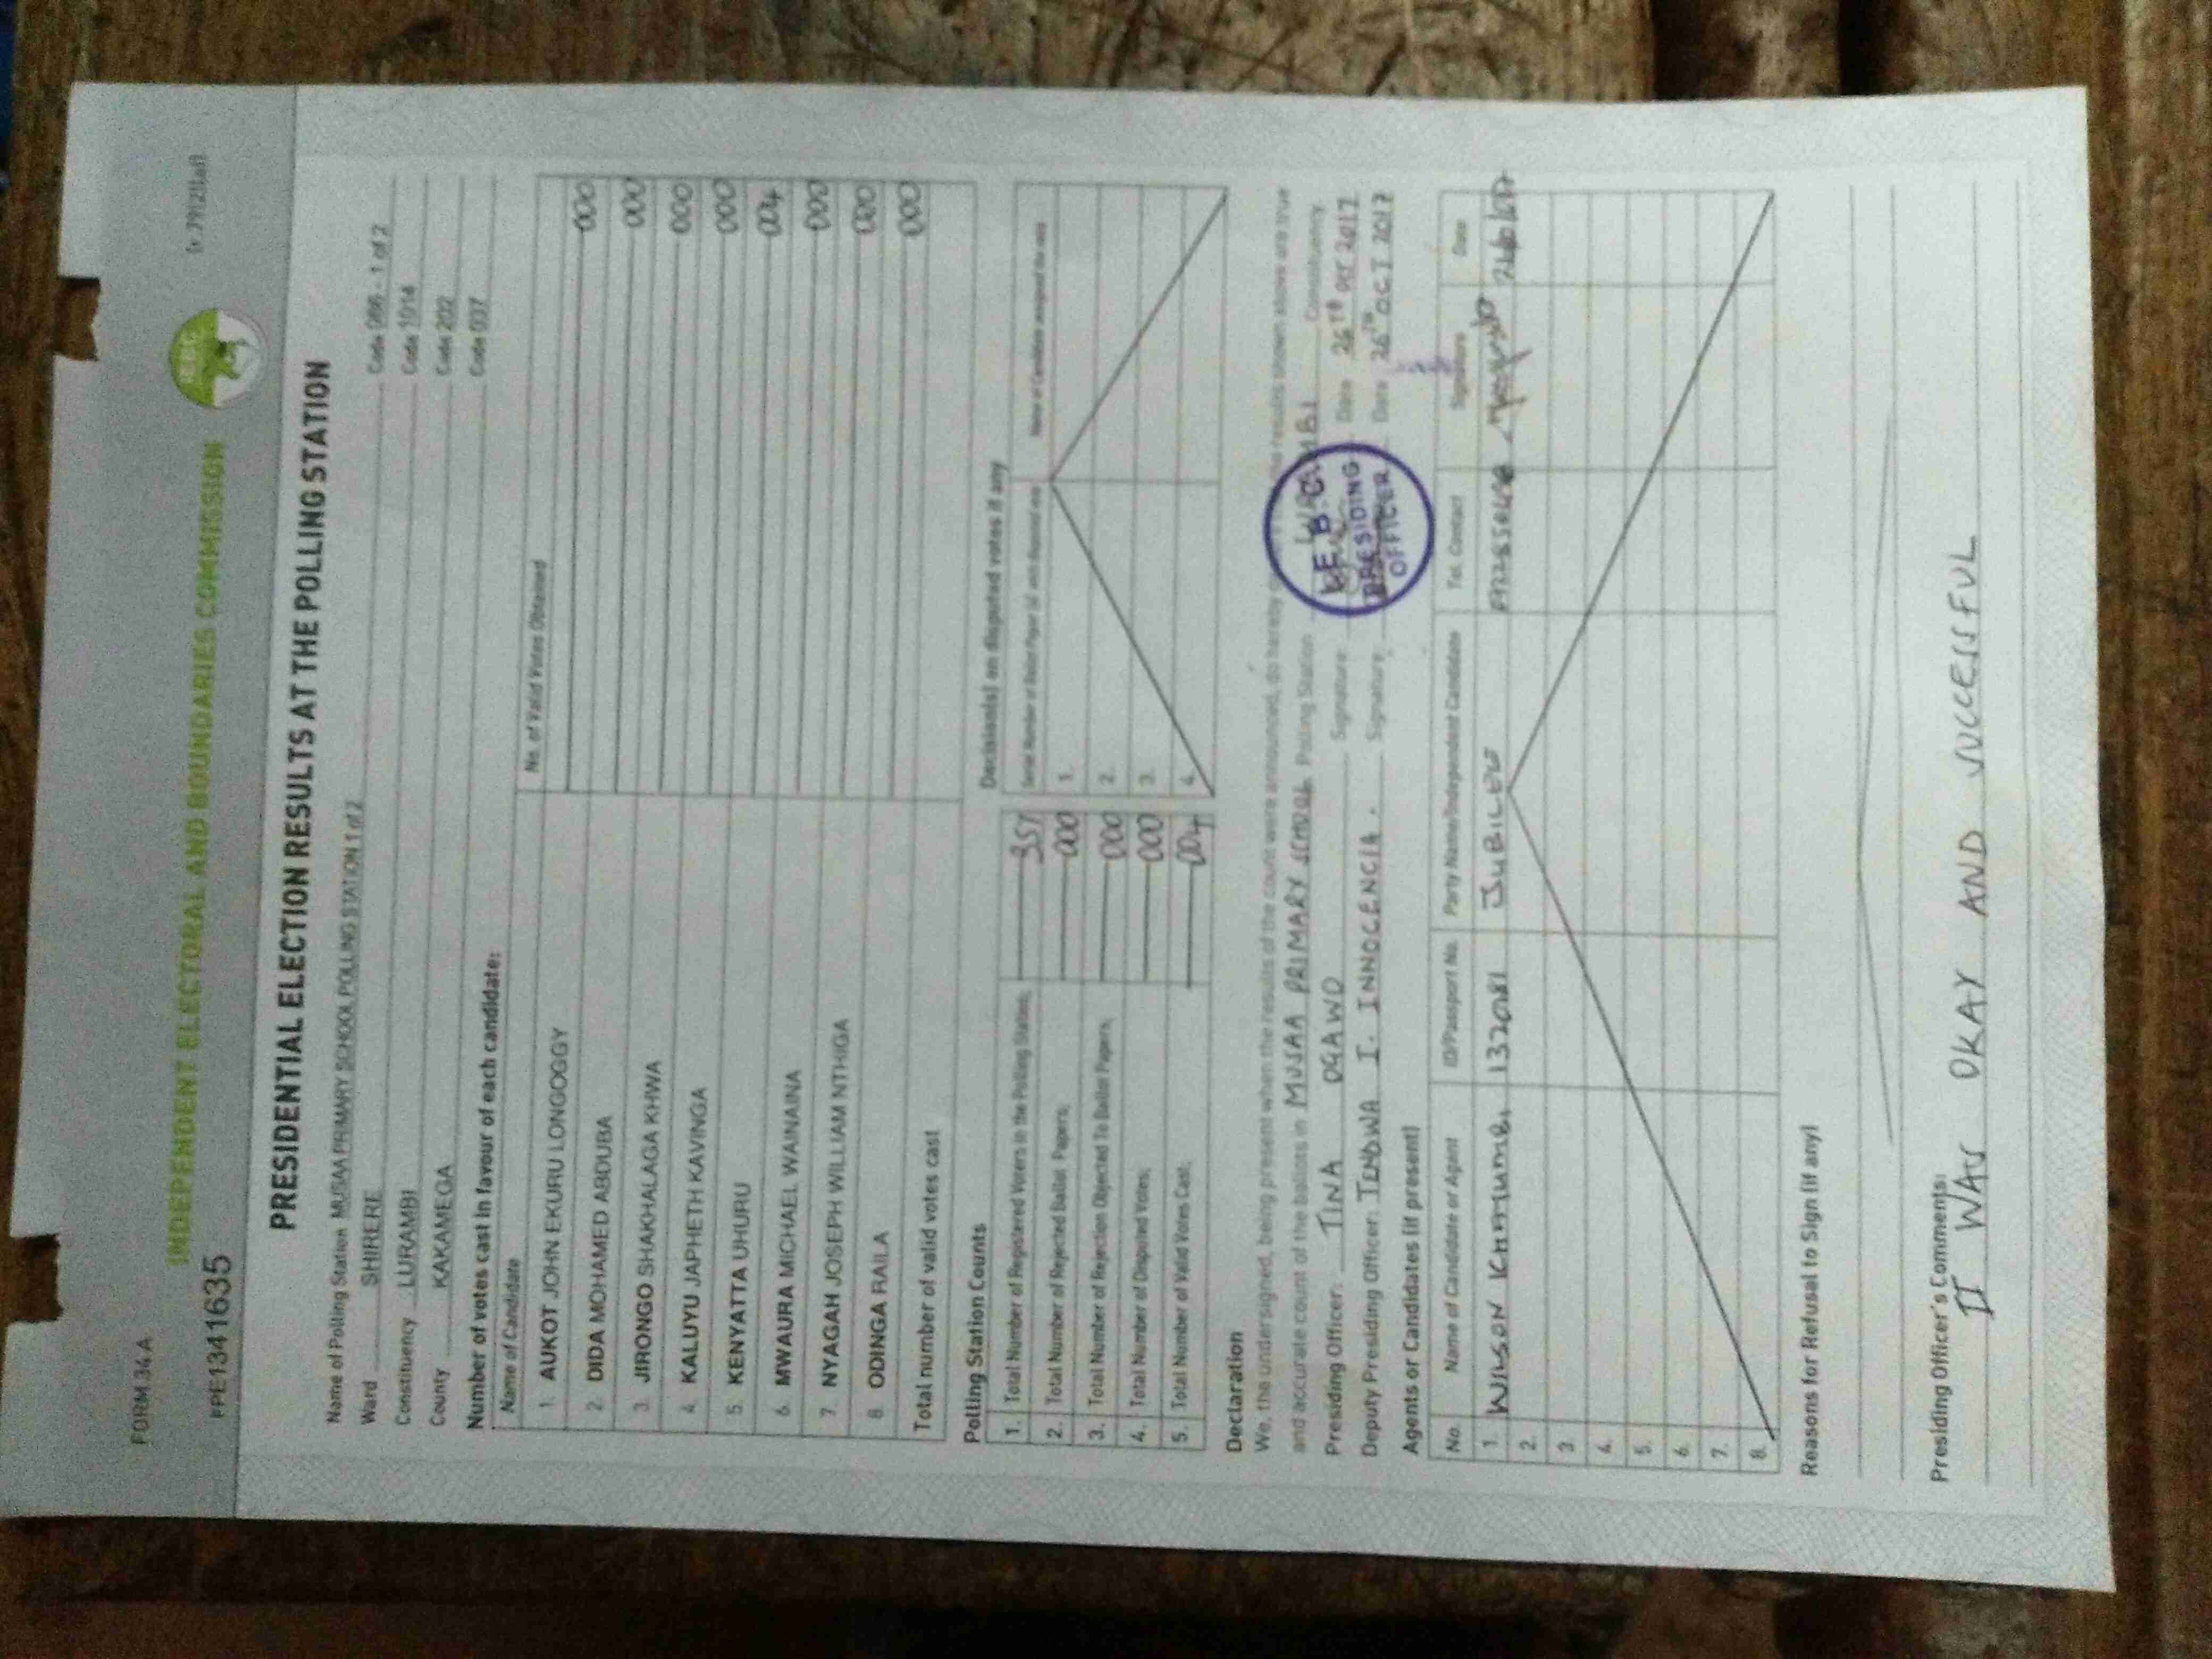 FORM 34A
(v.7912)(a8)
INDEPENDENT ELECTORAL AND BOUNDARIES COMMISSION
PPE1341635
PRESIDENTIAL ELECTION RESULTS AT THE POLLING STATION
Name of Polling Station MUSAA PRIMARY SCHOOL POLLING STATION 1 of 2 Code 086 - 1 of 2
Ward SHIRERE Code 1014
Constituency LURAMBI Code 202
County KAKAMEGA Code 037
Number of votes cast in favour of each candidate:
Name of Candidate No. of Valid Votes Obtained
1. AUKOT JOHN EKURU LONGOGGY 000
2. DIDA MOHAMED ABDUBA 000
3. JIRONGO SHAKHALAGA KHWA 000
4. KALUYU JAPHETH KAVINGA 000
5. KENYATTA UHURU 004
6. MWAURA MICHAEL WAINAINA 000
7. NYAGAH JOSEPH WILLIAM NTHIGA 000
8. ODINGA RAILA 000
Total number of valid votes cast
Polling Station Counts
1. Total Number of Registered Voters in the Polling Station; 357
2. Total Number of Rejected Ballot Papers; 000
3. Total Number of Rejection Objected To Ballot Papers; 000
4. Total Number of Disputed Votes; 000
5. Total Number of Valid Votes Cast; 004
Decision(s) on disputed votes if any
1.
2.
3.
4.
Declaration
We, the undersigned, being present when the results of the count were announced, do hereby the results shown above are true
and accurate count of the ballots in MUSAA PRIMARY SCHOOL Polling Station LURAMBI Constituency
Presiding Officer: TINA OGAWO Signature: Date 26TH OCT 2017
Deputy Presiding Officer: TENDWA I. INNOCENCIA . Signature: Date 26TH OCT 2017
I.E.B.C
PRESIDING
OFFICER
Agents or Candidates (if present)
No. Name of Candidate or Agent ID/Passport No. Party Name/Independent Candidate Tel. Contact Signature Date
1. WILSON JUBILEE
2.
3.
4.
5.
6.
7.
8.
Reasons for Refusal to Sign (if any)
Presiding Officer's Comments:
IT WAS OKAY AND SUCCESSFUL